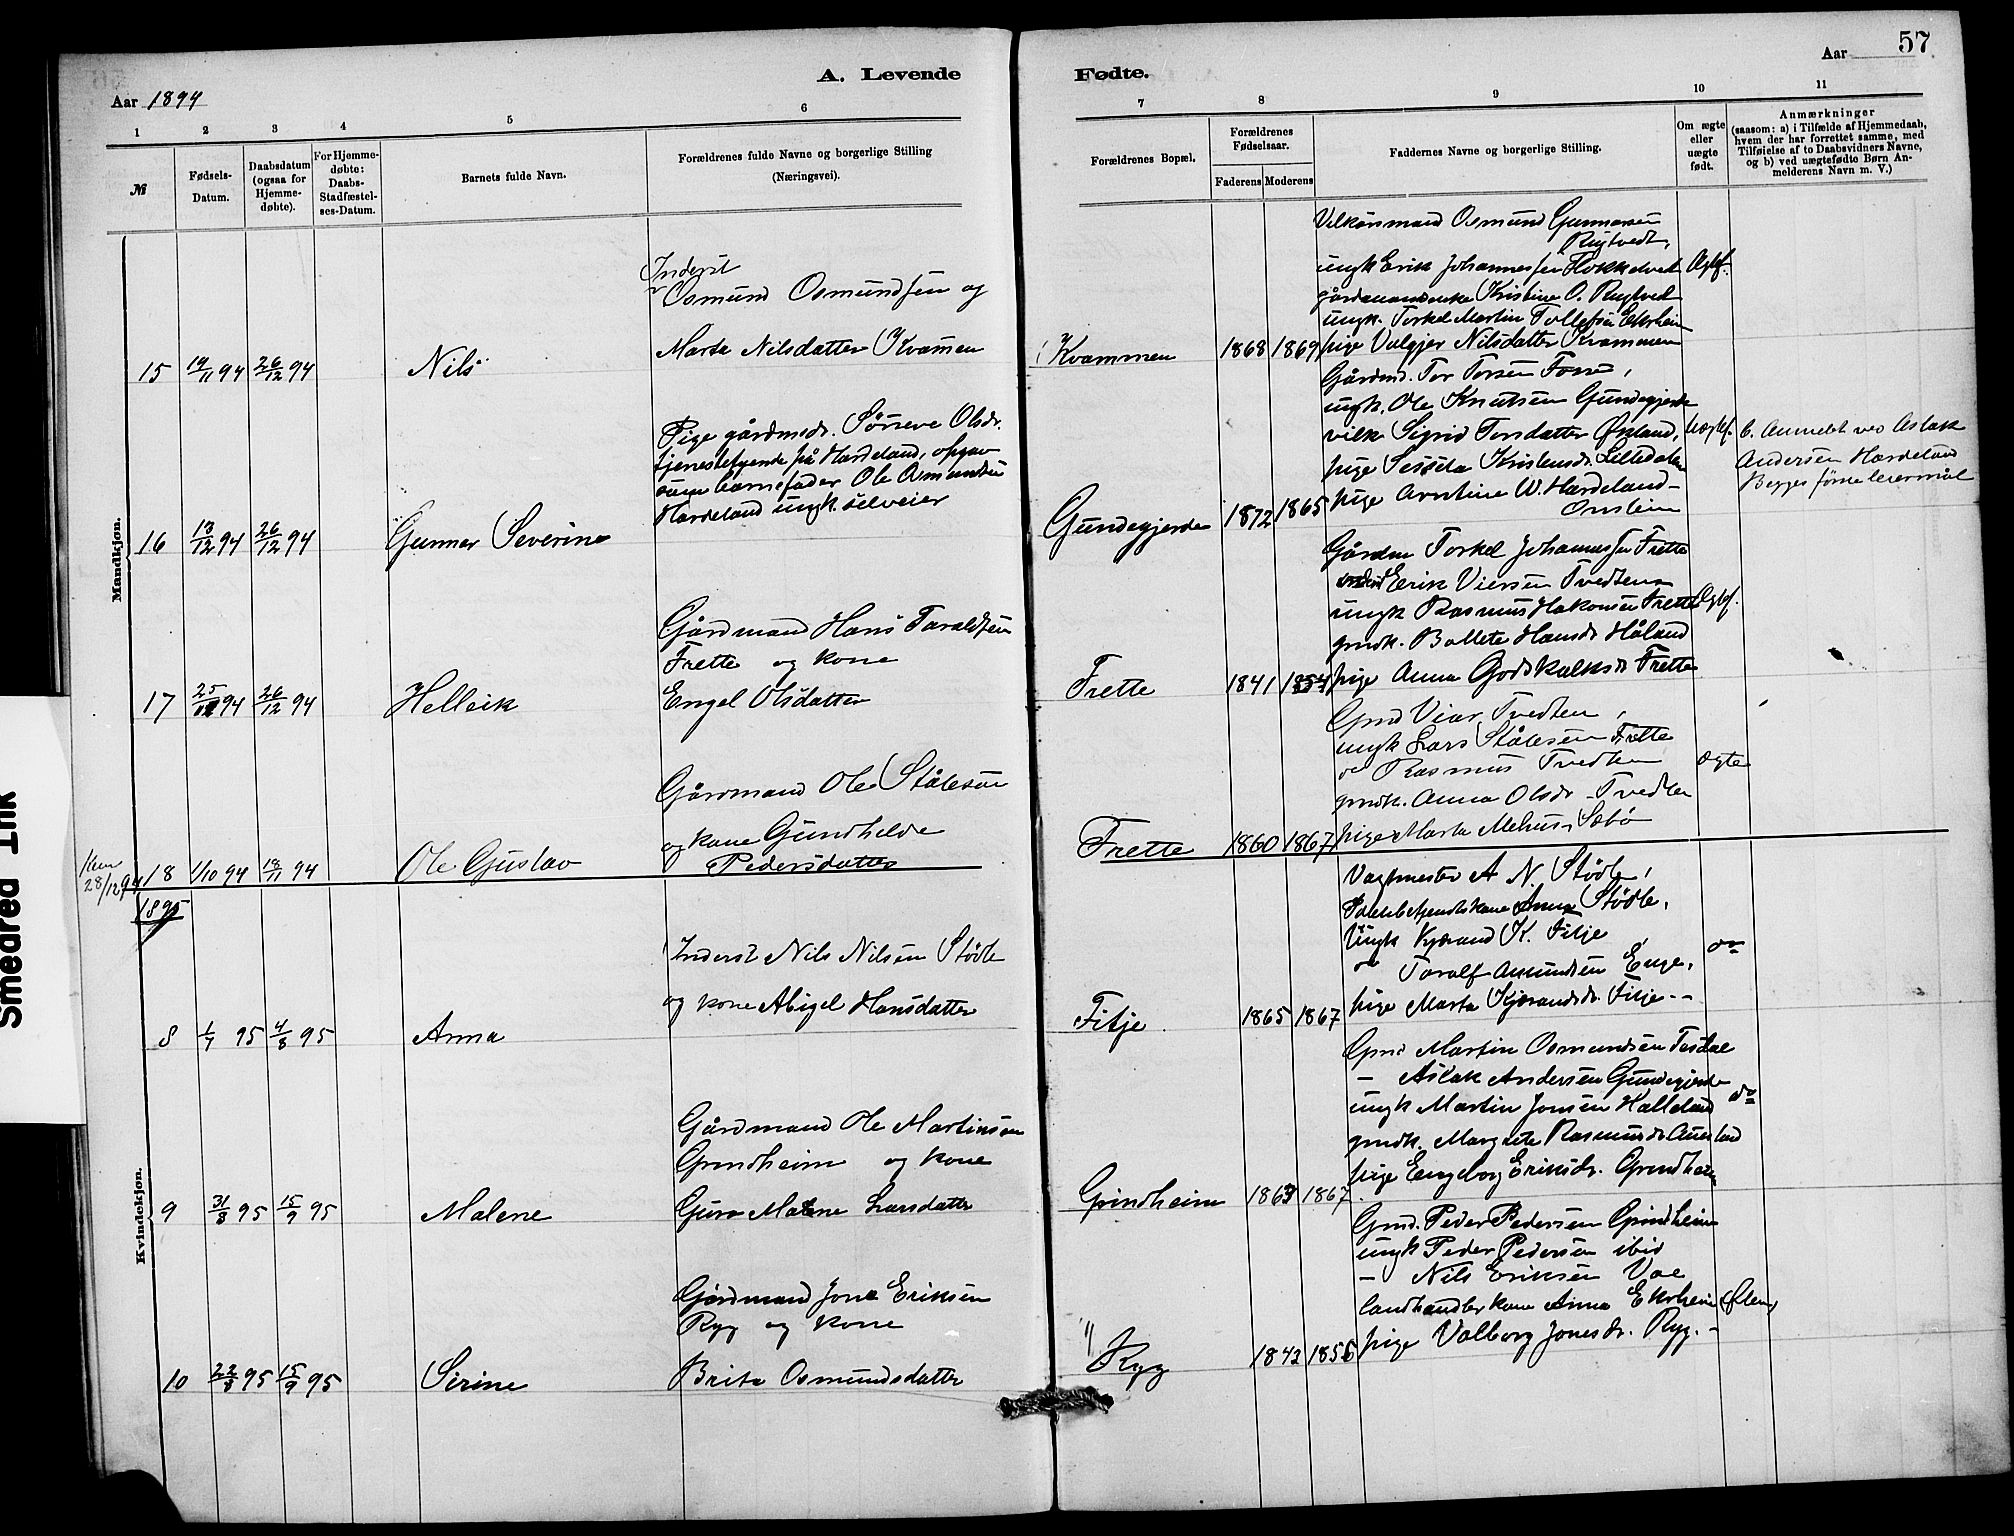 A. Levende
Fødte.
Aar 57
Aar 1894
1 2 3 4 5 6
7 8 9 10 11
№
Fødsels-
Datum.
Daabsdatum
(ogsaa for
Hjemme-
døbte).
For Hjemme-
døbte:
Daabs-
Stadfæstel-
ses-Datum.
Barnets fulde Navn.
Forældrenes fulde Navne og borgerlige Stilling
(Næringsvei).
Forældrenes Bopæl.
Forældrenes
Fødselsaar.
Faderens Moderens
Faddernes Navne og borgerlige Stilling.
Om ægte
eller
uægte
født.
Anmærkninger
(saasom: a) i Tilfælde af Hjemmedaab,
hvem der har forrettet samme, med
Tilføielse af to Daabsvidners Navne,
og b) ved uægtefødte Børn An-
melderens Navn m. V.)
Mandkjøn.
15 19/11 94 26/12 94 Nils
Inderst
Osmund Osmundsen og
Marta Nilsdatter Kvamen
Kvammen 1868 1869
Velkårsmand Osmund Gunnarsen
Rygtvedt,
ungk Erik Johannessen Flokketvedt
gårdmandsenke Kristine O. Rygtved
ungk. Torkel Martin Tollefsen Ekrheim
pige Valgjer Nilsdatter Kvammen
Ægtef.
16 13/12 94 26/12 94 Gunnar Severin
Pige gårdmsdr. Sørine Olsdr.
tjenestetyende på Hardeland, opgav
som barnefader Ole Osmundsen
Hardeland ungk. selveier
Gundegjerde 1872 1865
Gårdmd. Tor Torsen
ungk. Ole Knutsen Gundegjerde
vilk Sigrid Torsdatter Økland,
pige Sessela Kristensdr. Lilledalen
pige Arntine W. Hardeland
Uægtef.
b. Anmeldt ved Aslak
Andersen Hardeland
Begges første leiermål
17 25/11 94 26/12 94 Helleik
Gårdmand Hans Taraldsen
Frette og kone
Engel Olsdatter
Frette 1841 1854
Gårdm Torkel Johannessen Frette
Erik Viersen Tvedten
ungk Rasmus Hakonsen Frette
gmdk. Bollete Hansdr Håland
pige Anna Godskalksdr Frette
Ægtef.
18 1/10 94 18/11 94 Ole Gustav
Gårdmand Ole Ståleson
og kone Gundhilde
Pedersdatter
Frette 1860 1867
Gmd Viar Tvedten,
ungk Lars Stålesen Frette
do Rasmus Tvedten
gmdk. Anna Olsdr. Tvedten
pige Marta Mehus, Sæbø
Ægte
28/12 94
1895
Kvindekjøn.
8 1/7 95 4/8 95 Anna
Inderst Nils Nilsen Stødle
og kone Abigel Hansdatter
Fitje 1865 1867
Vagtmester A N. Stødle,
Anna Stødle,
Ungk Kjærand K. Fitje
do Toralf Amundsen Enge,
pige Marta Kjærandsdr. Fitje
do
9 31/8 95 15/9 95 Malene
Gårdmand Ole Martinsen
Grindheim og kone
Guro Malene Larsdatter
Grindheim 1863 1867
Gmd Martin Osmundsen Tesdal
– Aslak Andersen Gundegjerde
ungk Martin Jonsen Halleland
gmdk. Margrete Rasmusdr Austad
pige Engeborg Eriksdr. Grindheim
do
10 22/8 95 15/9 95 Sirine
Gårdmand Jone Eriksen
Ryg og kone
Brita Osmundsdatter
Ryg 1842 1856
Gmd. Peder Pedersen Grindheim
ungk Peder Pedersen ibid
– Nils Eriksen Vae
landhandlerkone Anna Ekrheim (Ølen)
pige Valborg Jonesdr. Ryg.
Smeared Ink